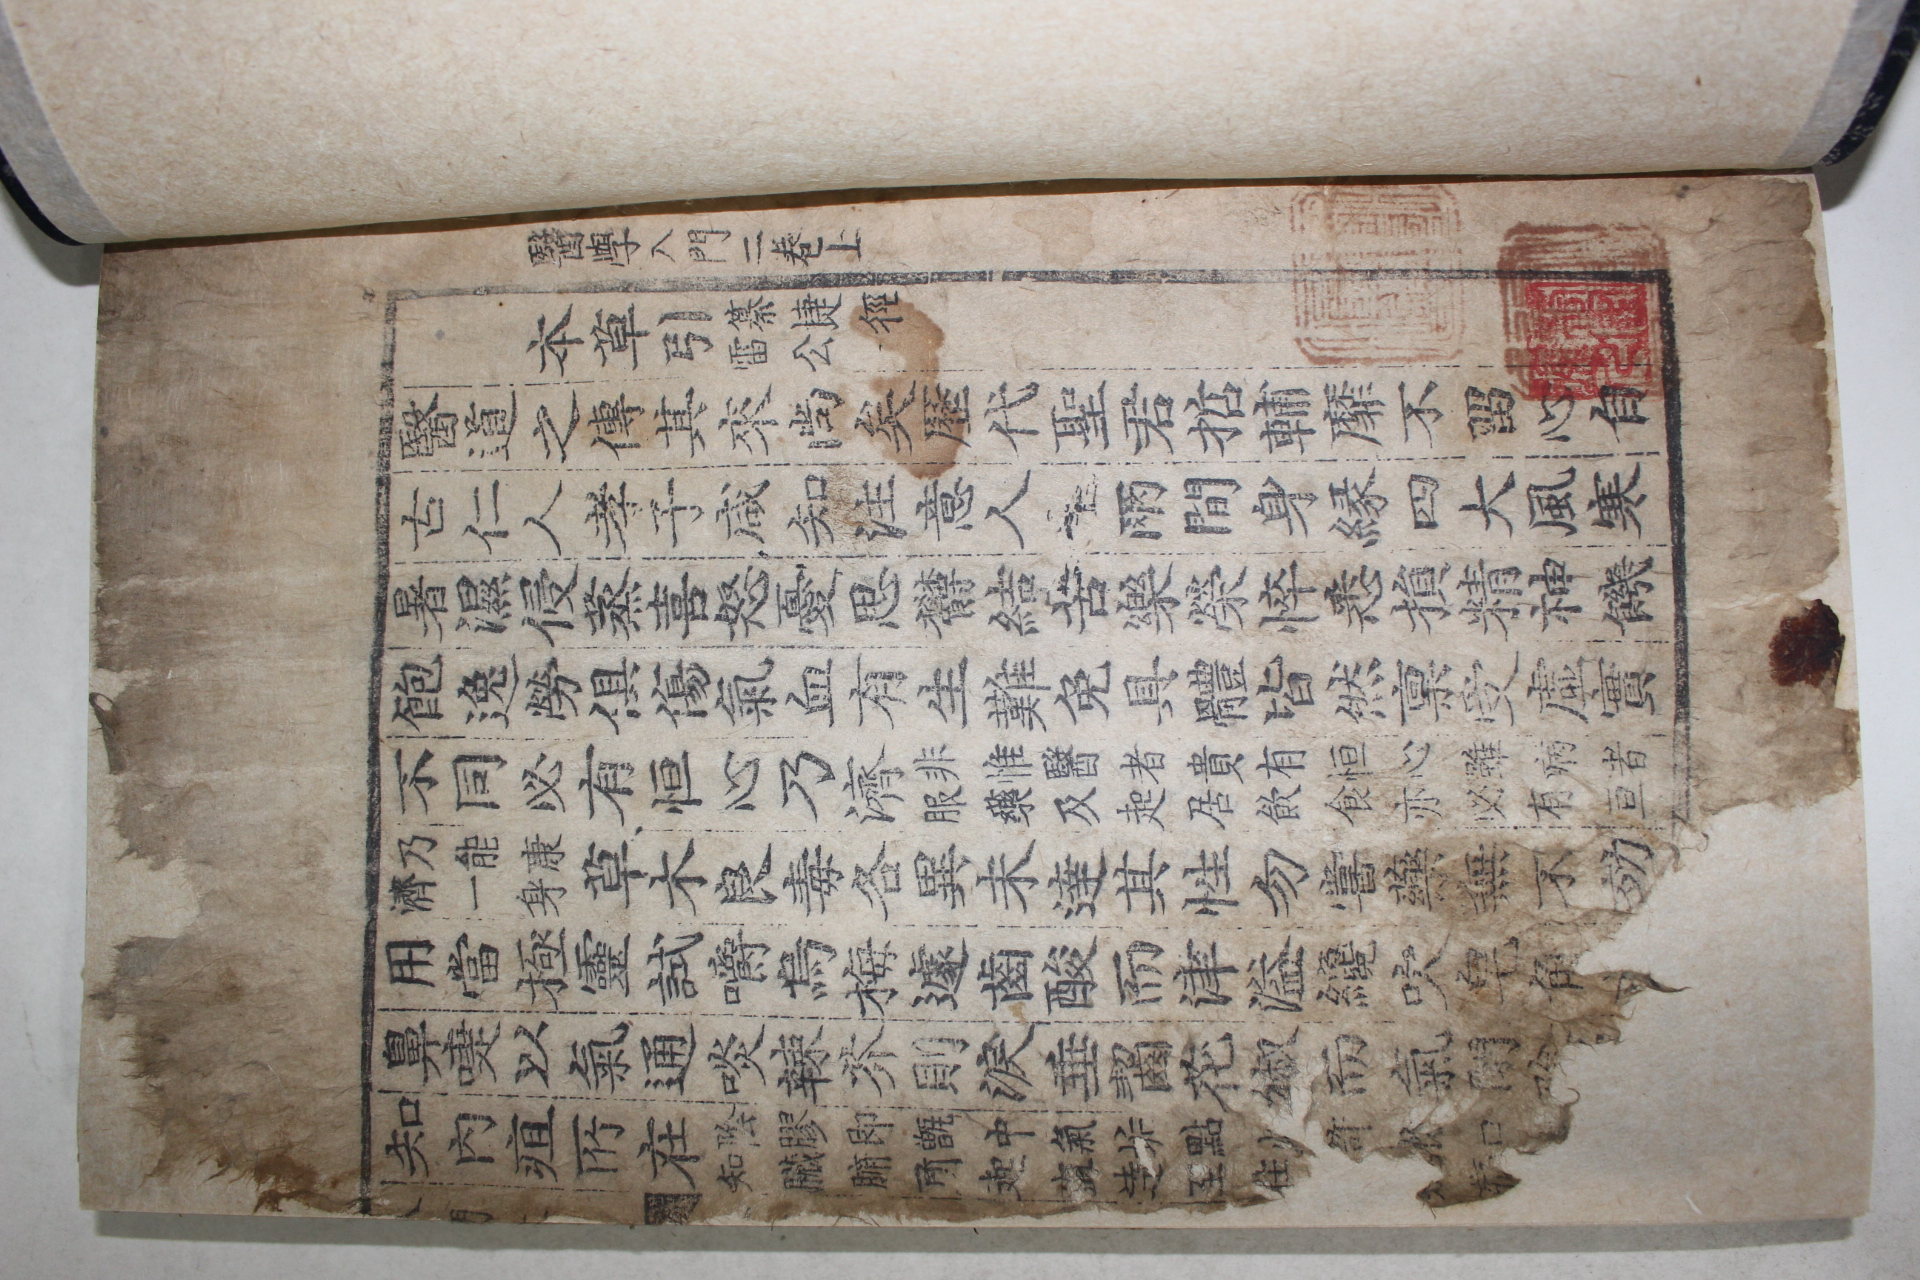 醫學入門二卷上
本草引
纂捷徑
雷公
醫道之傳其來尚矣歷代聖君哲輔靡不留心自
古仁人孝子咸知注意人生兩間身緣四大風寒
暑濕侵蒸喜怒憂思欝結苦樂榮悴悉損精神饑
飽逸勞俱傷氣血有生難免具體皆然稟受虛實
不同必有恒心乃濟
非惟醫者貴有恒心雖病者
服藥及起居飲食亦必有亘
乃能康
濟一身
草木良毒各異未達其性勿嘗藥無不効
用當極靈試嚼烏梅遽齒酸而津溢纔吹皂角
鼻嚏以氣通啖辣芥則淚垂齧花椒而氣閉陰
知內疽所在
陰膠即甑中氣垢點少許於口
知臟腑所起直達至住